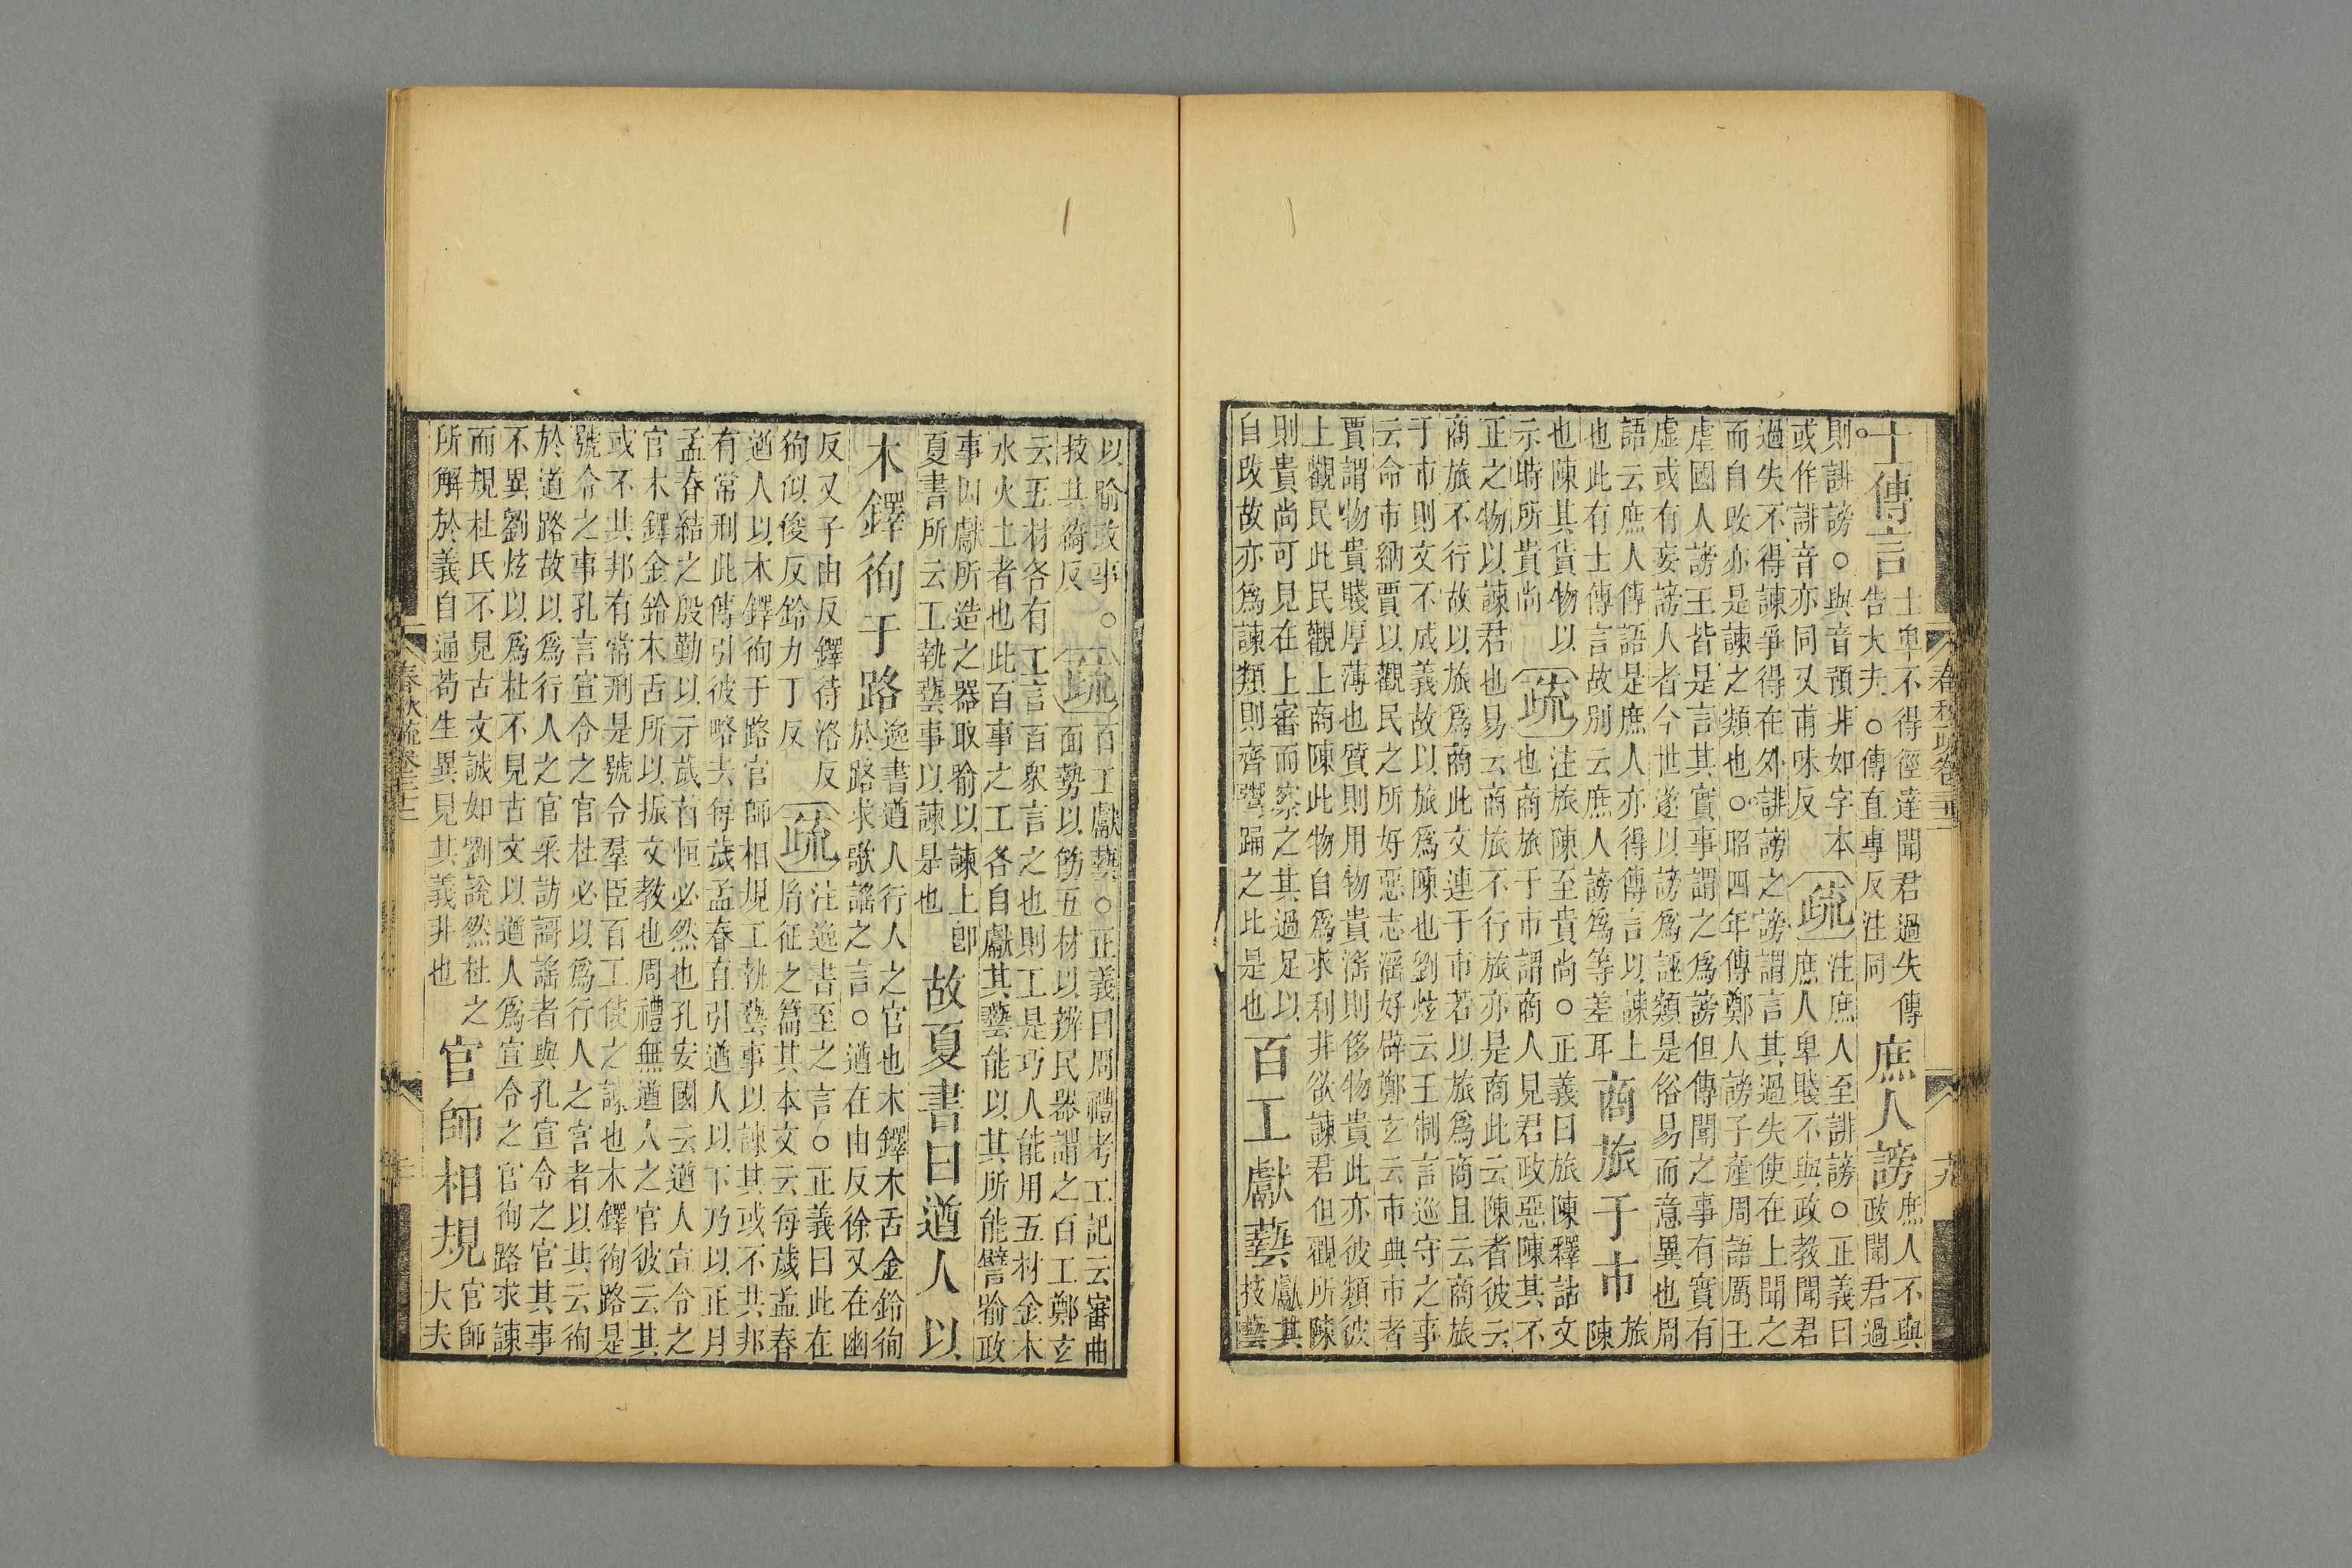 士傳言
士卑不得徑達聞君過失傳
告大夫。○傳直專反注同
庶人謗
庶人不與
政聞君過
則誹謗○與音預非如字本
或作誹音亦同又甫味反
疏
注庶人至誹謗○正義曰
庶人卑賤不與政教聞君
過失不得諫爭得在外誹謗之謗謂言其過失使在上聞之
而自改亦是諫之類也○昭四年傳鄭人謗子產周語厲王
虐國人謗王皆是言其實事謂之爲謗但傳聞之事有實有
虛或有妄謗人者今世遂以謗爲誣類是俗易而意異也周
語云庶人傳語是庶人亦得傳言以諫上
也此有士傳言故別云庶人謗爲等差耳
商旅于市
旅
陳
也陳其貨物以
示時所貴尚
疏
注旅陳至貴尚○正義曰旅陳釋詁文
也商旅于市謂商人見君政惡陳其不
正之物以諫君也易云商旅不行旅亦是商此云陳者彼云
商旅不行故以旅爲商此文連于市若以旅爲商且云商旅
于市則文不成義故以旅爲陳也劉炫云王制言巡守之事
云命市納賈以觀民之所好惡志滛好辟鄭玄云市典市者
賈謂物貴賤厚薄也質則用物貴滛則侈物貴此亦彼類彼
上觀民此民觀上商陳此物自爲求利非欲諫君但觀所陳
則貴尚可見在上審而察之其過足以
自改故亦爲諫類則齊鬻踊之比是也
百工獻藝
獻其
技藝
春秋疏卷三十二
九
以喻政事。○
技其綺反
疏
百工獻藝○正義曰周禮考工記云審曲
面勢以飭五材以辨民器謂之百工鄭玄
云五材各有工言百眾言之也則工是巧人能用五材金木
水火土者也此百事之工各自獻其藝能以其所能譬喻政
事因獻所造之器取喻以諫上卽
夏書所云工執藝事以諫是也
故夏書曰遒人以
木鐸徇于路
逸書遒人行人之官也木鐸木舌金鈴徇
於路求歌謠之言○遒在由反徐又在幽
反又子由反鐸待洛反
徇似俊反鈴力丁反
疏
注逸書至之言○正義曰此在
胤征之篇其本文云每歲孟春
遒人以木鐸徇于路官師相規工執藝事以諫其或不共邦
有常刑此傳引彼略去每歲孟春直引遒人以下乃以正月
孟春結之殷勤以示歲首恒必然也孔安國云遒人宣令之
官木鐸金鈴木舌所以振文教也周禮無遒人之官彼云其
或不共邦有常刑是號令羣臣百工使之諫也木鐸徇路是
號令之事孔言宣令之官杜必以爲行人之官者以其云徇
於道路故以爲行人之官采訪謌謠者與孔宣令之官其事
不異劉炫以爲杜不見古文以遒人爲宣令之官徇路求諫
而規杜氏不見古文誠如劉說然杜之
所解於義自通苟生異見其義非也
官師相規
官師
大夫
春秋疏卷三十二